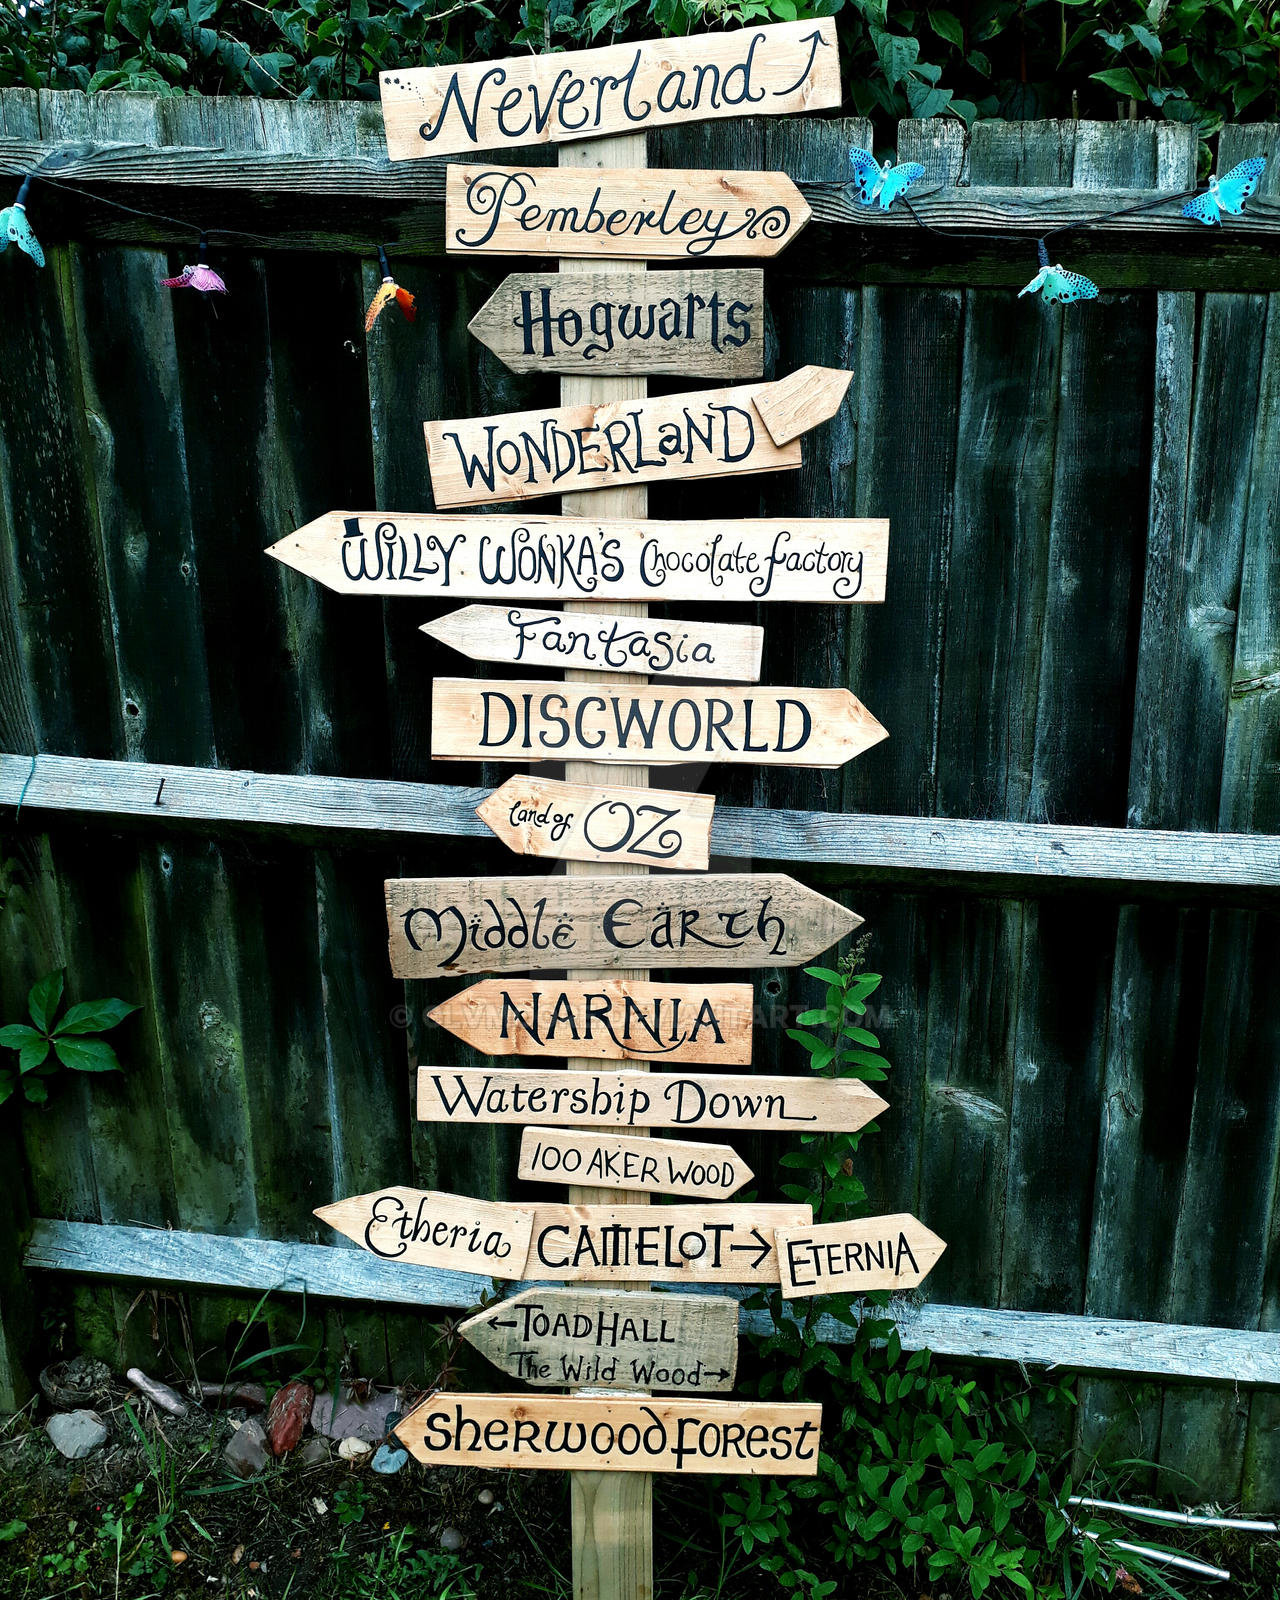 Neverland
Pemberley
Hogwarts
WONDERLaND
WILLY WONKA'S Chocolate factory
Fantasia
DISCWORLD
land of OZ
Middle Earth
NARNIA
Watership Down
100 AKER WOOD
Etheria CAMELOT→ ETERNIA
←TOAD HALL
The Wild Wood→
SherwoodForest